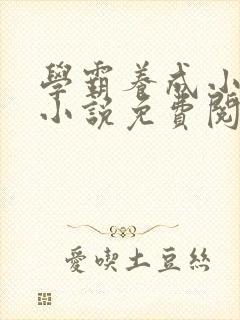 學霸養成小
小說免費閱
愛喫土豆絲